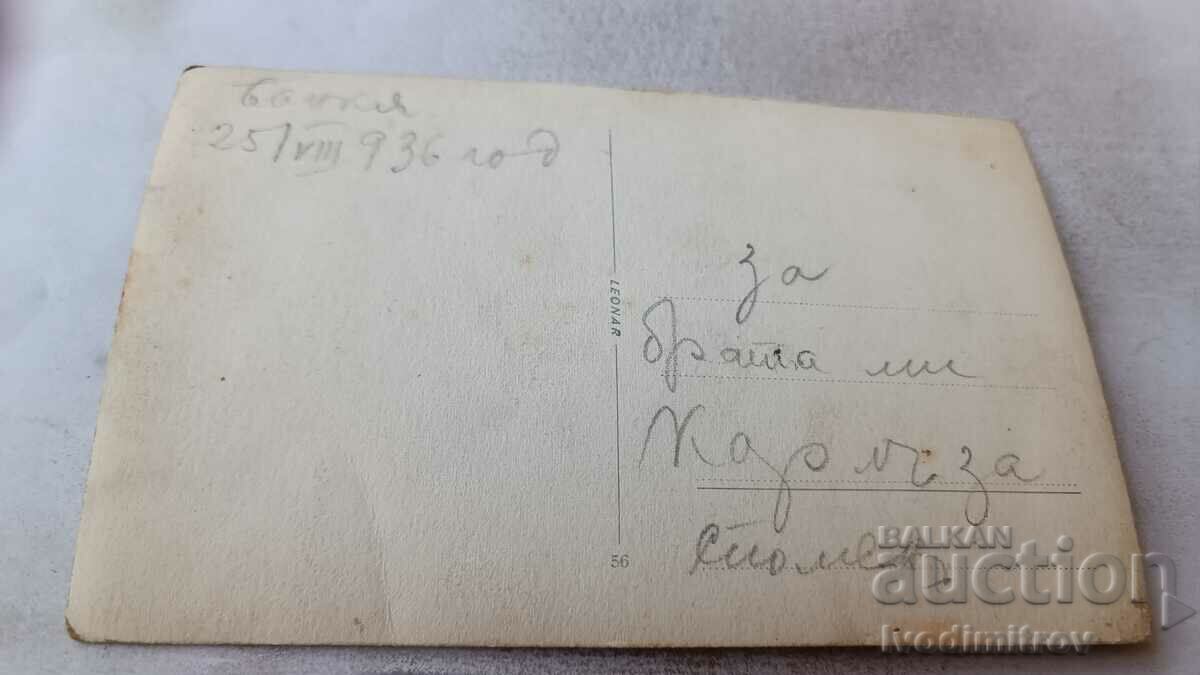 Банкя
25/VIII 936 год
за
брата ми
за
спомен
LEONAR
56
BALKAN
auction
Ivodimitrov